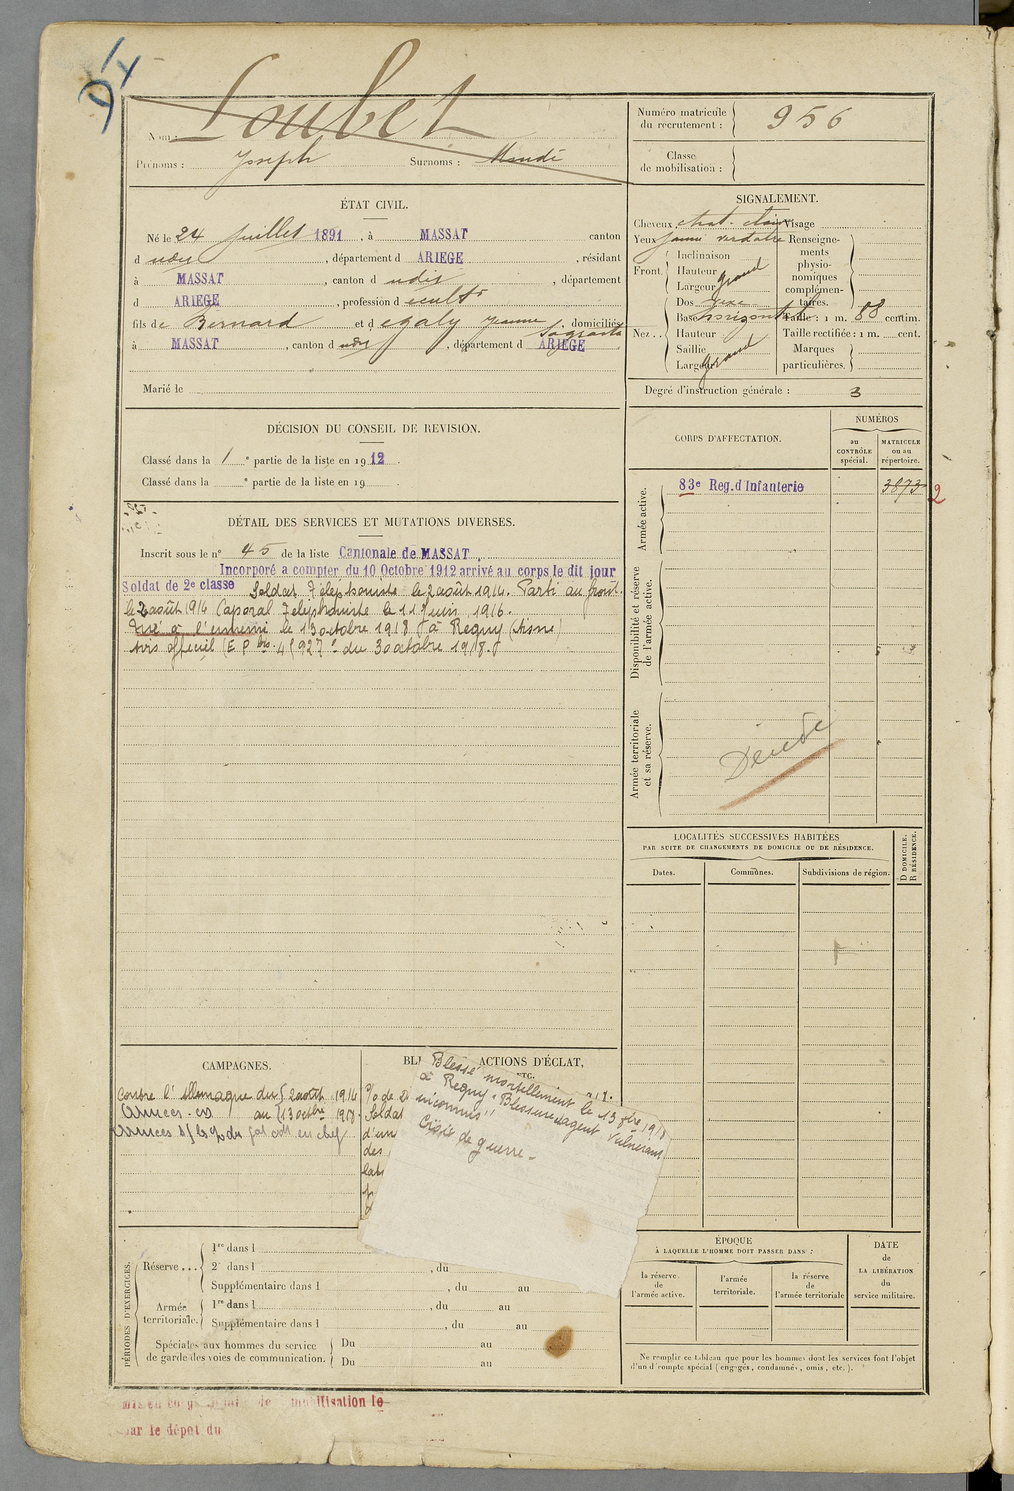 Nom : Loubet
Prénoms : Joseph Surnoms :
Numéro matricule du recrutement : 956
Classe de mobilisation :
ÉTAT CIVIL.
Né le 24 Juillet 1891, à MASSAT canton
d udis, département d ARIEGE, résidant
à MASSAT, canton d udis, département
d ARIEGE, profession d
fils de Bernard et d egaly Jeanne, domiciliés
à MASSAT, canton d udis, département d ARIEGE
Marié le
SIGNALEMENT.
Cheveux chat. clair Visage
Yeux jaune verdatre Renseigne-
ments
physio-
nomiques
complémen-
taires.
Front.
Inclinaison
Hauteur
Largeur grand
Nez . .
Dos
Base horizontal
Hauteur
Saillie
Largeur grand
Taille : 1 m. 88 centim.
Taille rectifiée : 1 m. cent.
Marques
particulières.
Degré d'instruction générale : 3
DÉCISION DU CONSEIL DE REVISION.
Classé dans la 1 e partie de la liste en 1912.
Classé dans la e partie de la liste en 19 .
CORPS D'AFFECTATION.
NUMÉROS
au CONTRÔLE spécial.
MATRICULE ou au répertoire.
Armée active.
83e Reg. d'Infanterie 3873 2
Disponibilité et réserve de l'armée active.
Armée territoriale et sa réserve.
DÉTAIL DES SERVICES ET MUTATIONS DIVERSES.
Inscrit sous le n° 45 de la liste Cantonale de MASSAT.
Incorporé a compter du 10 Octobre 1912 arrivé au corps le dit jour
Soldat de 2e classe Soldat Téléphoniste le 2 août 1914. Parti au front
le 2 août 1914 Caporal Téléphoniste le 11 Juin 1916.
Tué à l'ennemi le 13 octobre 1918 à Regny (Aisne)
Avis officiel du 30 octobre 1918.
LOCALITÉS SUCCESSIVES HABITÉES
PAR SUITE DE CHANGEMENTS DE DOMICILE OU DE RÉSIDENCE.
Dates.
Communes.
Subdivisions de région.
D DOMICILE.
R RÉSIDENCE.
CAMPAGNES.
Contre l'Allemagne du 2 août 1914
au 13 octbre 1918.
BL ACTIONS D'ÉCLAT,
ETC.
Soldat
d'un
des
Blessé mortellement le 13 8bre 1918
à Regny. Blessure agent vulnérant
inconnus"
Croix de guerre -
PÉRIODES D'EXERCICES.
Réserve . . .
1re dans l
2e dans l , du
Supplémentaire dans l , du au
Armée territoriale.
1re dans l , du au
Supplémentaire dans l , du au
Spéciales aux hommes du service
de garde des voies de communication.
Du au
Du au
ÉPOQUE
À LAQUELLE L'HOMME DOIT PASSER DANS :
la réserve de l'armée active.
l'armée territoriale.
la réserve de l'armée territoriale
DATE
de
LA LIBÉRATION
du
service militaire.
Ne remplir ce tableau que pour les hommes dont les services font l'objet
d'un décompte spécial (engagés, condamnés, omis, etc.).
mobilisation le
par le dépôt du